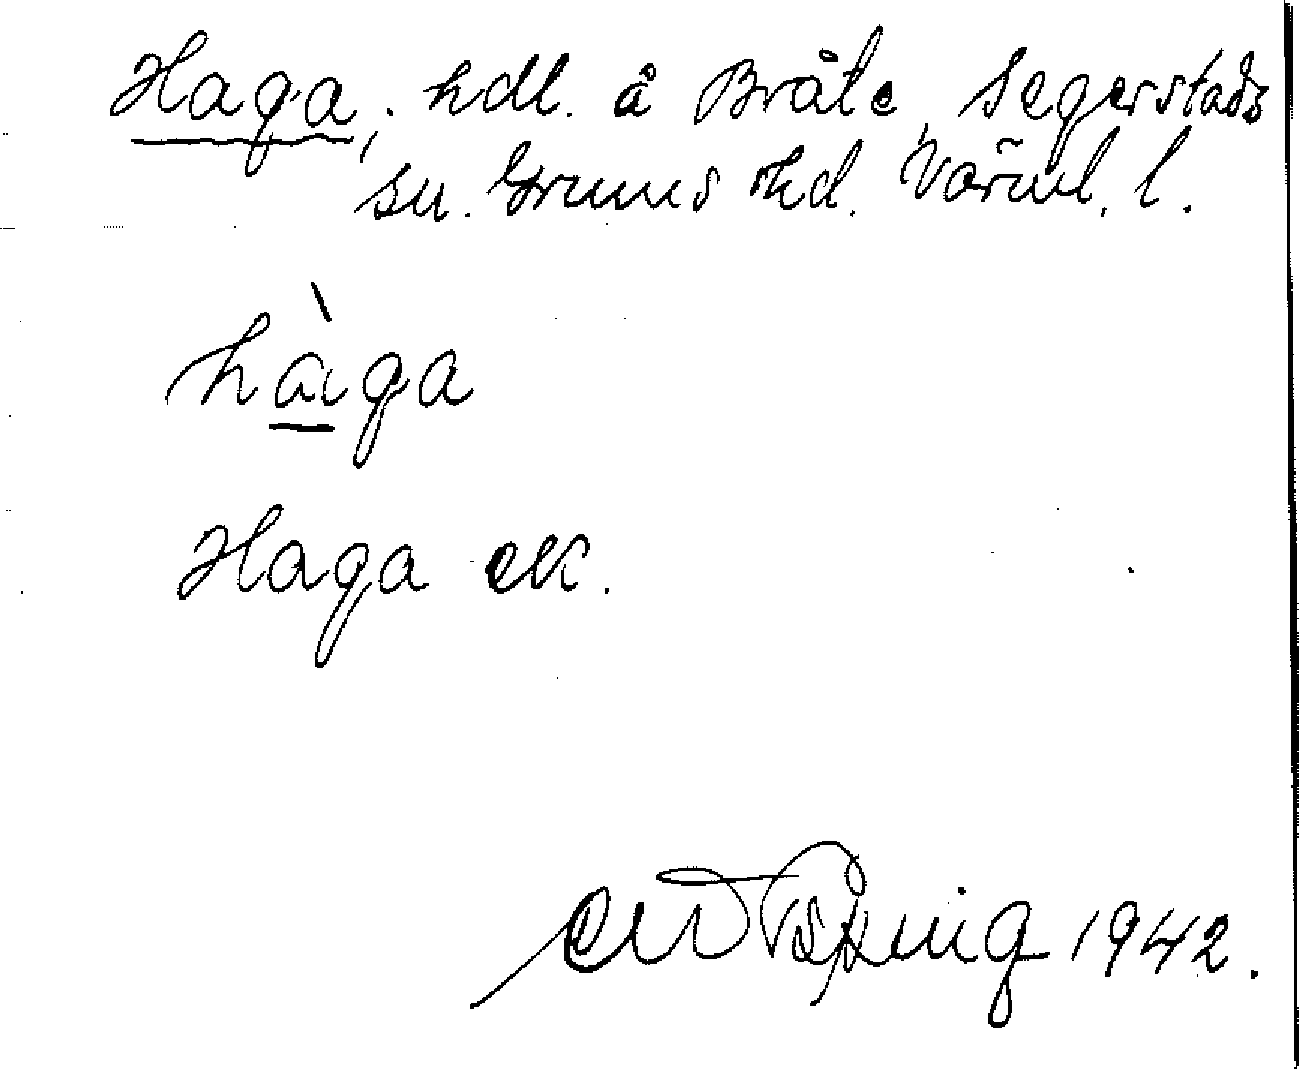 Haga, hdl. å Bråte, Segerstads
sn. Grums hd. Värml. l.
hàga
Haga ek.
1942.